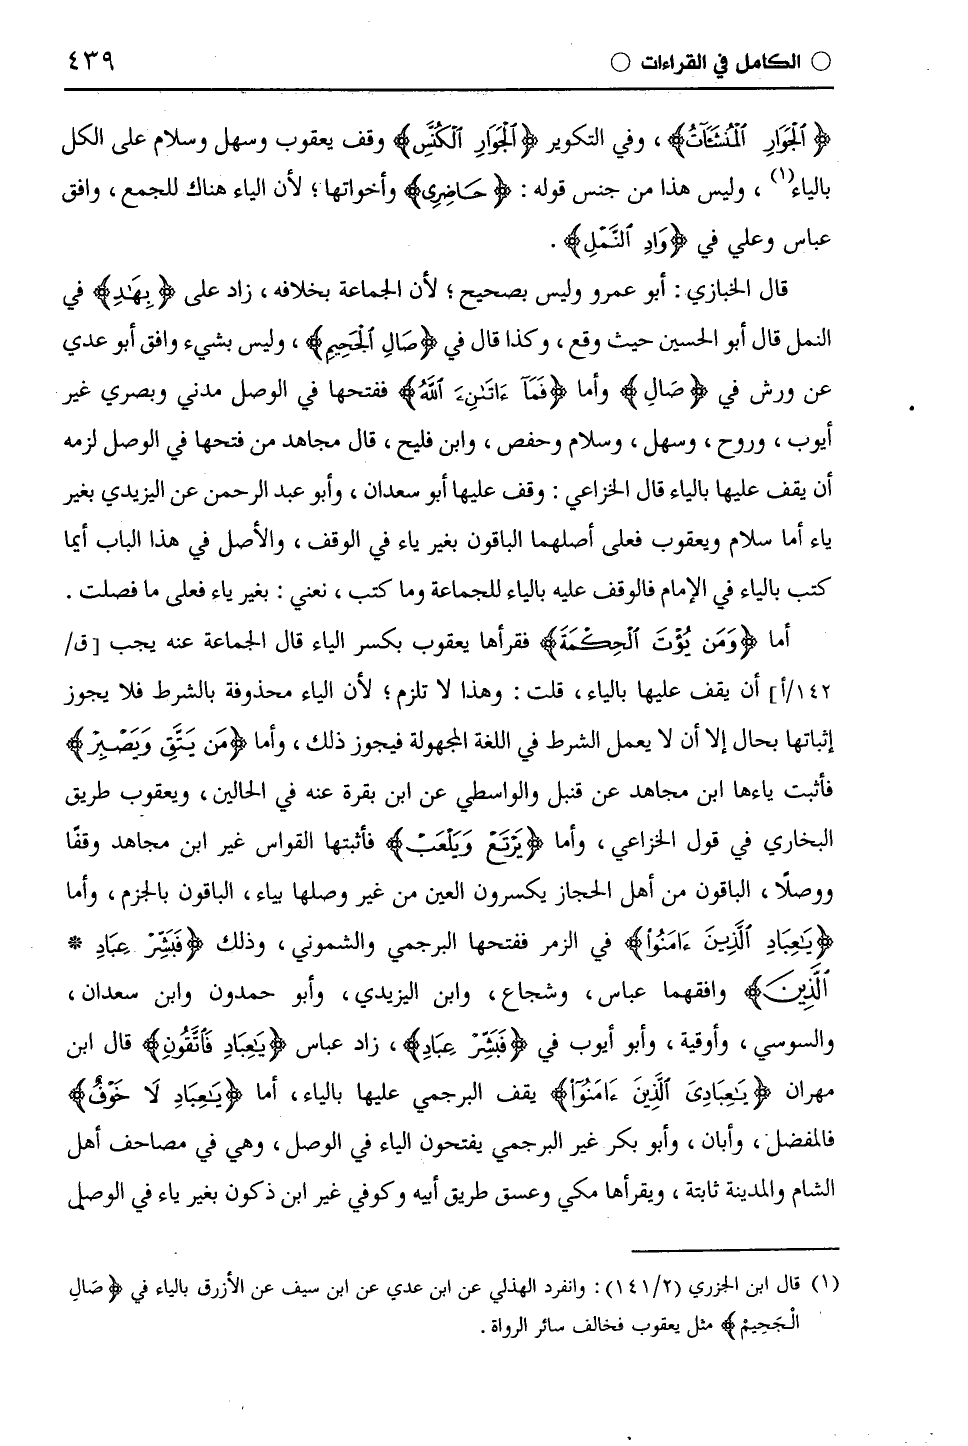 ○ الكامل في القراءات ○ ٤٣٩
﴿ٱلْجَوَارِ ٱلْمُنشَـَٔاتُ﴾ ، وفي التكوير ﴿ٱلْجَوَارِ ٱلْكُنَّسِ﴾ وقف يعقوب وسهل وسلام على الكل
بالياء(١) ، وليس هذا من جنس قوله : ﴿حَاضِرِى﴾ وأخواتها ؛ لأن الياء هناك للجمع ، وافق
عباس وعلي في ﴿وَادِ ٱلنَّمْلِ﴾ .
قال الخبازي : أبو عمرو وليس بصحيح ؛ لأن الجماعة بخلافه ، زاد على ﴿بِهَـٰدِ﴾ في
النمل قال أبو الحسين حيث وقع ، وكذا قال في ﴿صَالِ ٱلْجَحِيمِ﴾ ، وليس بشيء وافق أبو عدي
عن ورش في ﴿صَالِ﴾ وأما ﴿فَمَآ ءَاتَىٰنِۦَ ٱللَّهُ﴾ ففتحها في الوصل مدني وبصري غير
أيوب ، وروح ، وسهل ، وسلام وحفص ، وابن فليح ، قال مجاهد من فتحها في الوصل لزمه
أن يقف عليها بالياء قال الخزاعي : وقف عليها أبو سعدان ، وأبو عبد الرحمن عن اليزيدي بغير
ياء أما سلام ويعقوب فعلى أصلهما الباقون بغير ياء في الوقف ، والأصل في هذا الباب أيما
كتب بالياء في الإمام فالوقف عليه بالياء للجماعة وما كتب ، نعني : بغير ياء فعلى ما فصلت .
أما ﴿وَمَن يُؤْتَ ٱلْحِكْمَةَ﴾ فقرأها يعقوب بكسر الياء قال الجماعة عنه يجب [ق/
١٤٢/أ] أن يقف عليها بالياء ، قلت : وهذا لا تلزم ؛ لأن الياء محذوفة بالشرط فلا يجوز
إثباتها بحال إلا أن لا يعمل الشرط في اللغة المجهولة فيجوز ذلك ، وأما ﴿مَن يَتَّقِ وَيَصْبِرْ﴾
فأثبت ياءها ابن مجاهد عن قنبل والواسطي عن ابن بقرة عنه في الحالين ، ويعقوب طريق
البخاري في قول الخزاعي ، وأما ﴿يَرْتَعْ وَيَلْعَبْ﴾ فأثبتها القواس غير ابن مجاهد وقفًا
ووصلًا ، الباقون من أهل الحجاز يكسرون العين من غير وصلها بياء ، الباقون بالجزم ، وأما
﴿يَـٰعِبَادِ ٱلَّذِينَ ءَامَنُوا۟﴾ في الزمر ففتحها البرجمي والشموني ، وذلك ﴿فَبَشِّرْ عِبَادِ *
ٱلَّذِينَ﴾ وافقهما عباس ، وشجاع ، وابن اليزيدي ، وأبو حمدون وابن سعدان ،
والسوسي ، وأوقية ، وأبو أيوب في ﴿فَبَشِّرْ عِبَادِ﴾ ، زاد عباس ﴿يَـٰعِبَادِ فَٱتَّقُونِ﴾ قال ابن
مهران ﴿يَـٰعِبَادِىَ ٱلَّذِينَ ءَامَنُوٓا۟﴾ يقف البرجمي عليها بالياء ، أما ﴿يَـٰعِبَادِ لَا خَوْفٌ﴾
فالمفضل ، وأبان ، وأبو بكر غير البرجمي يفتحون الياء في الوصل ، وهي في مصاحف أهل
الشام والمدينة ثابتة ، ويقرأها مكي وعسق طريق أبيه وكوفي غير ابن ذكون بغير ياء في الوصل
(١) قال ابن الجزري (١٤١/٢) : وانفرد الهذلي عن ابن عدي عن ابن سيف عن الأزرق بالياء في ﴿صَالِ
الْجَحِيمِ﴾ مثل يعقوب فخالف سائر الرواة .